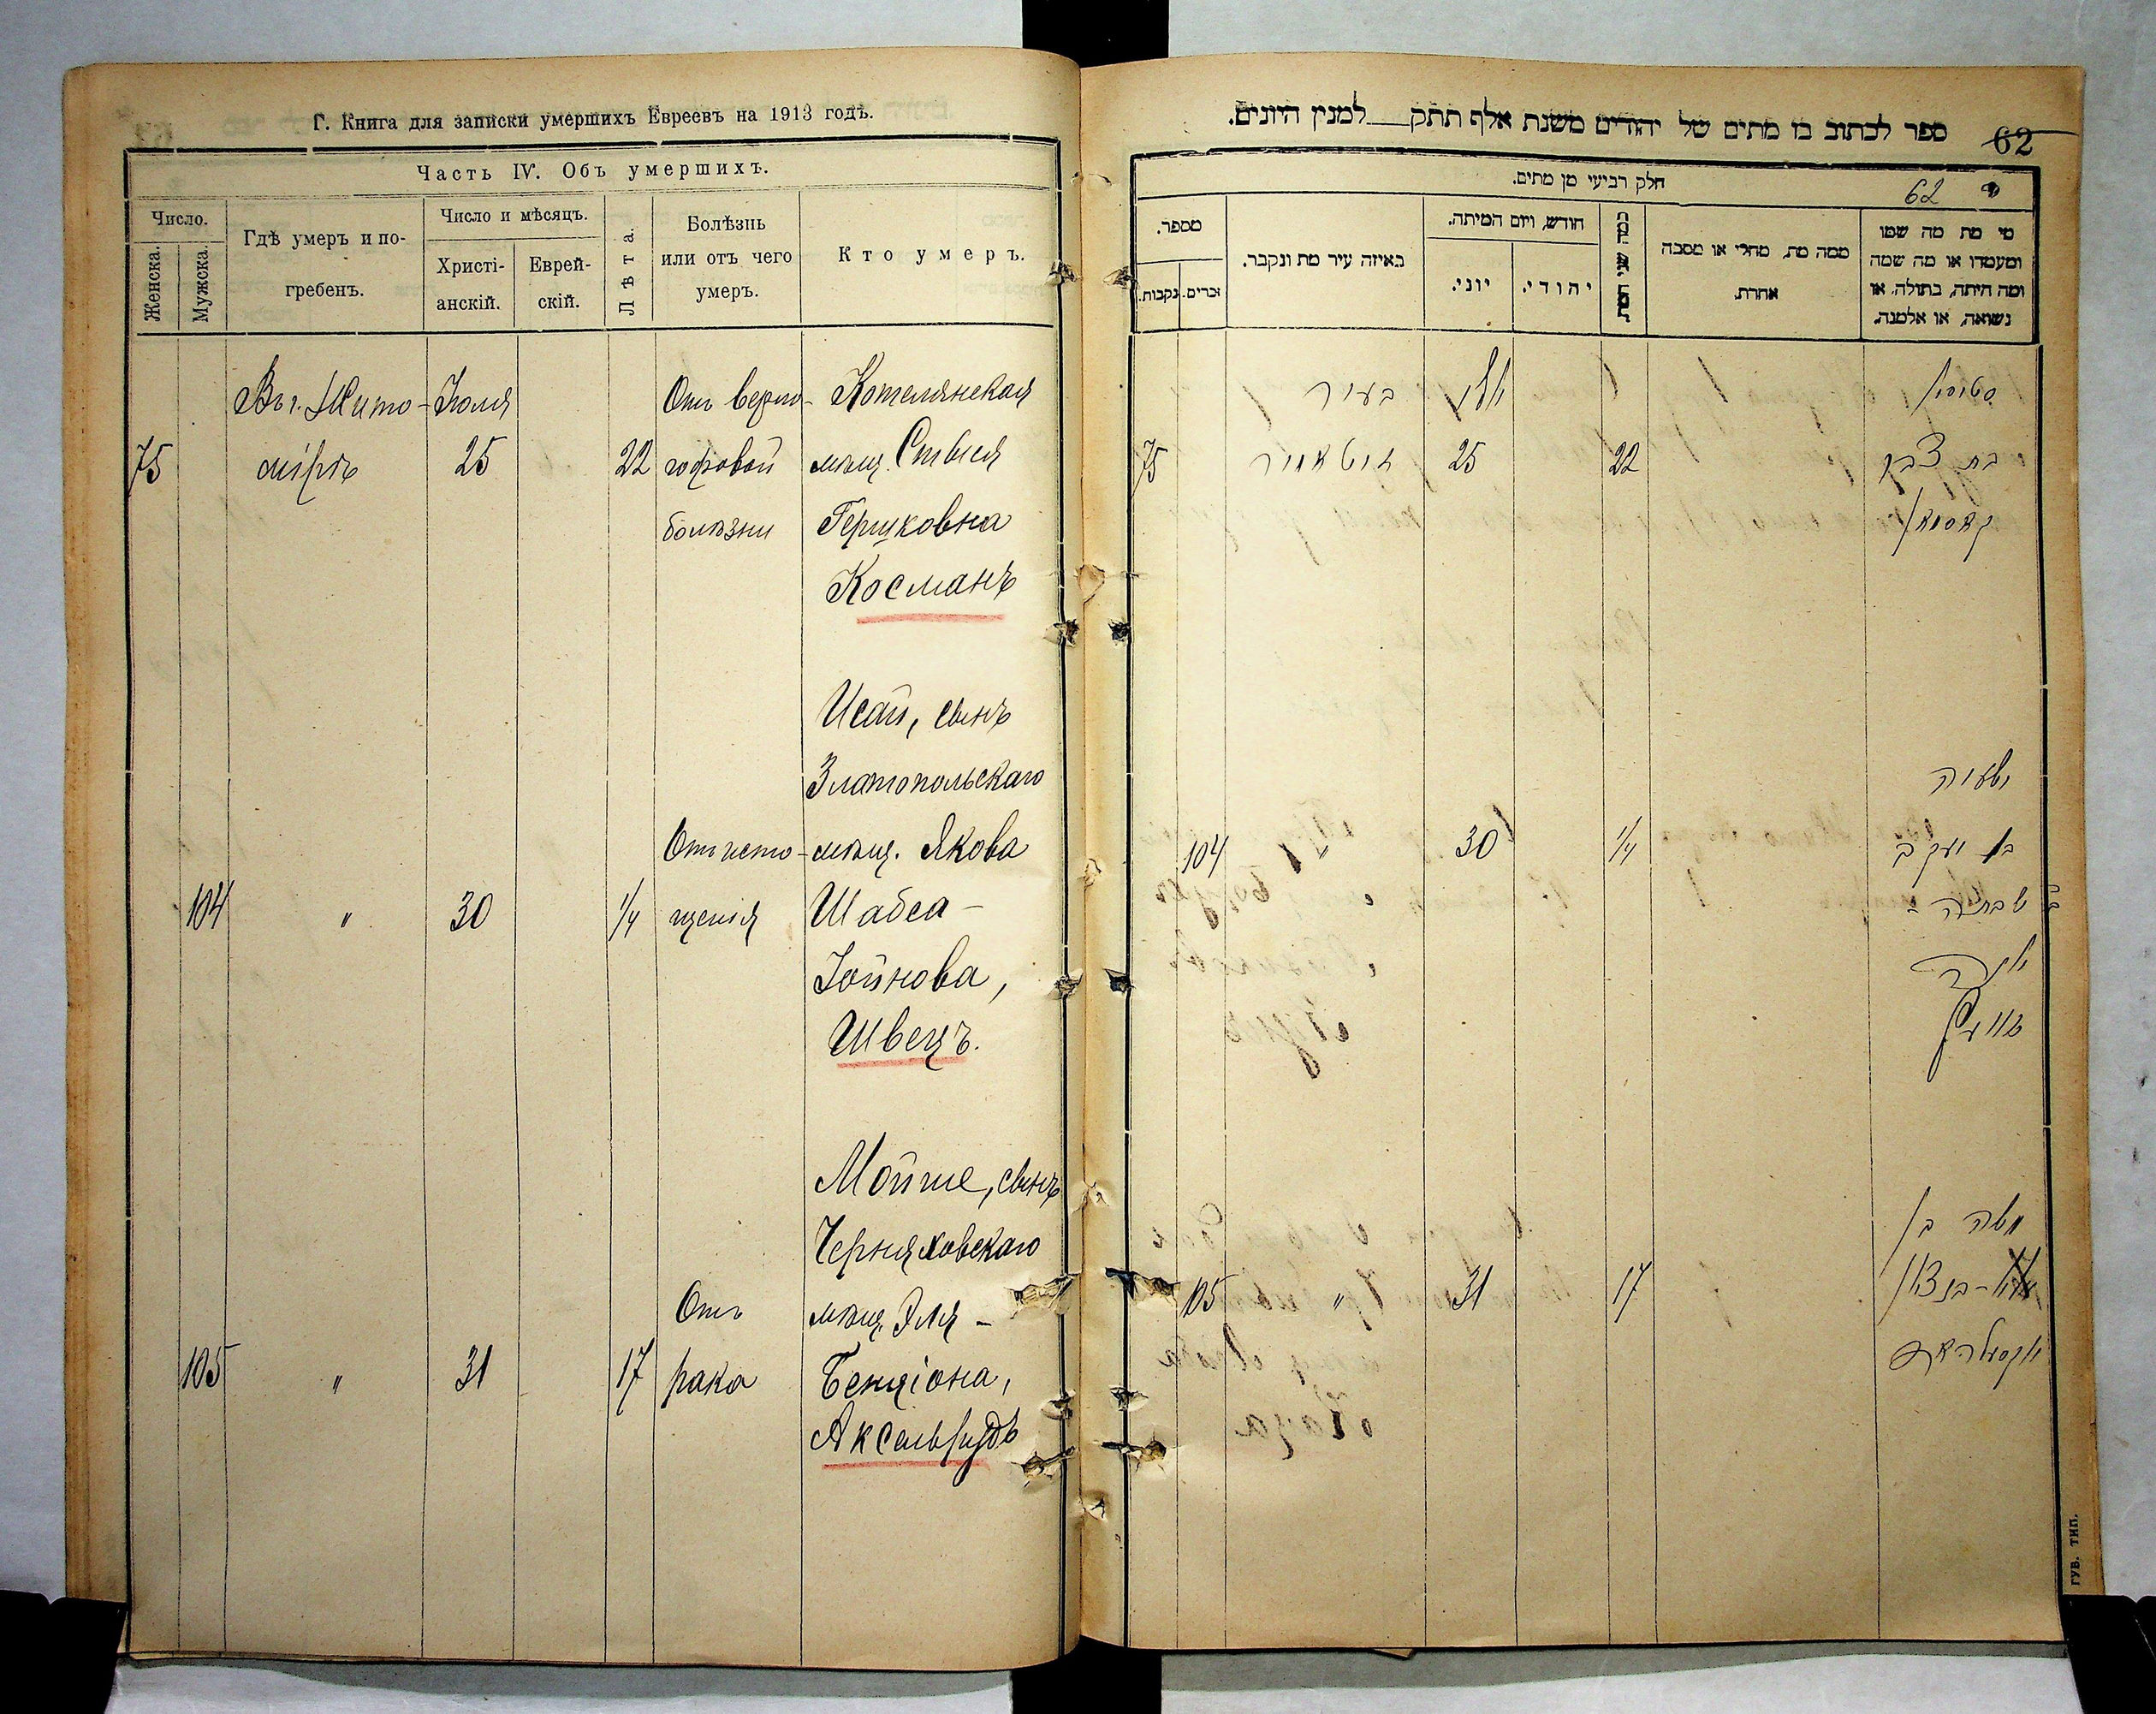 Г. Книга для записки умершихъ Евреевъ на 1913 годъ.
Часть IV. Объ умершихъ.
Число.
Женска.
Мужска.
Гдѣ умеръ и по-
гребенъ.
Число и мѣсяцъ.
Христі-
анскій.
Еврей-
скій.
Лѣта.
Болѣзнь
или отъ чего
умеръ.
Кто умеръ.
Въ г. Жито- Іюля Отъ Котелянская
75 мірѣ 25 22 мѣщ.
болѣзни Гершковна
Косманъ
Исай, сынъ
Златопольскаго
Отъ исто- мѣщ. Якова
104 " 30 1/4 щенія Шабса-
Іойнова,
Швецъ.
Мойше, сынъ
Черняховскаго
Отъ мѣщ. Эля-
105 " 31 17 рака Бенціона,
Аксельрудъ
ספר לכתוב בו מתים של יהודים משנת אלף תתק למנין היונים.
62
חלק רביעי מן מתים.
62
מספר.
נקבות.
זכרים.
באיזה עיר מת ונקבר.
חודש, ויום המיתה.
יוני.
יהודי.
כמה שני המת
ממה מת, מחלי או מסבה
אחרת.
מי מת מה שמו
ומעמדו או מה שמה
ומה היתה, בתולה, או
נשואה, או אלמנה.
בעיר יולי
75 זיטאמיר 25 22
קאסמאן
ישעיה
104 " 30 1/4 בן יעקב
יונה
שוועץ
משה בן
105 " 31 17 בן ציון
אקסעלראד
ГУБ. ТИП.